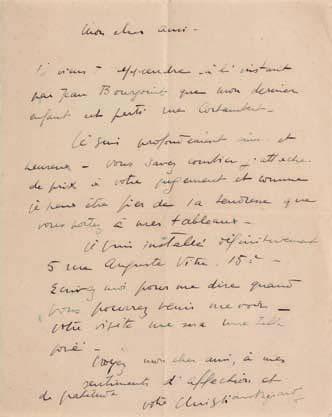 Mon cher ami -
Je viens d'apprendre - à l'instant
par Jean Bourgoint que mon dernier
enfant est parti rue Cortambert -
Je suis profondément ému et
heureux - vous savez combien j'attache
de prix à votre jugement et comme
je peux être fier de la tendresse que
vous portez à mes tableaux -
Je suis installé définitivement
5 rue Auguste Vitu. 15e -
Ecrivez moi pour me dire quand
vous pourrez venir me voir -
votre visite me sera une telle
joie -
Croyez mon cher ami, à mes
sentiments d'affection et
de gratitude
votre Christian Bérard